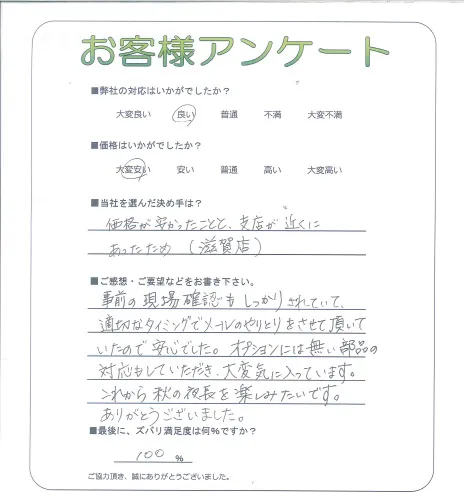 お客様アンケート
■弊社の対応はいかがでしたか？
大変良い 良い 普通 不満 大変不満
■価格はいかがでしたか？
大変安い 安い 普通 高い 大変高い
■当社を選んだ決め手は？
価格が安かったことと、支店が近くに
あったため（滋賀店）
■ご感想・ご要望などをお書き下さい。
事前の現場確認もしっかりされていて、
適切なタイミングでメールのやりとりをさせて頂いて
いたので安心でした。オプションには無い部品の
対応もしていただき、大変気に入っています。
これから秋の夜長を楽しみたいです。
ありがとうございました。
■最後に、ズバリ満足度は何%ですか？
100 %
ご協力頂き、誠にありがとうございました。